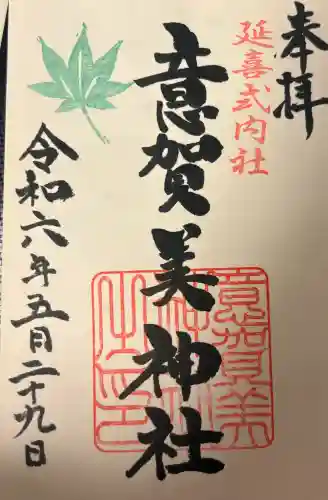 奉拝
延喜式内社
意賀美神社
意賀美神社之印
令和六年五月二十九日